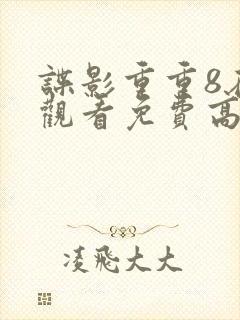 諜影重重8
觀看免費高
凌飛大大